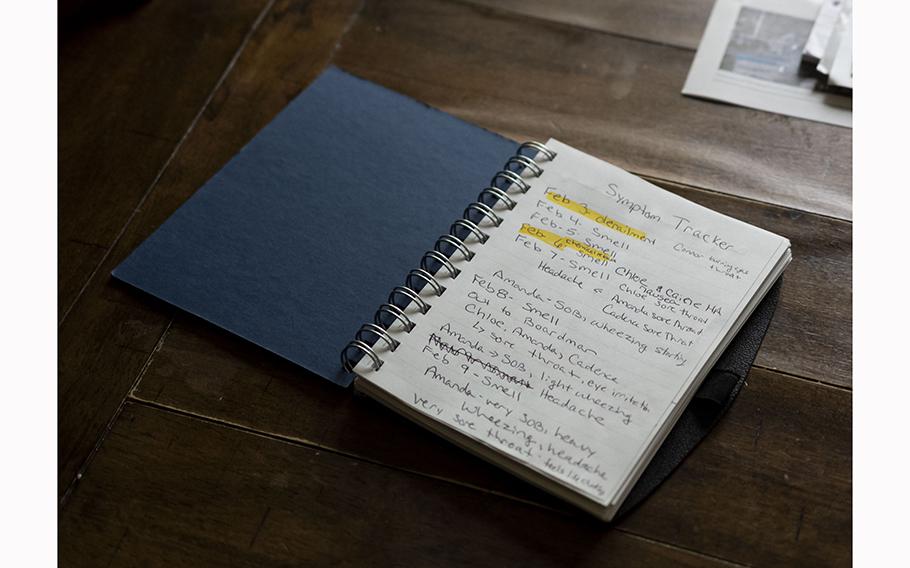 Symptom Tracker
Feb 3. derailment
Feb 4. Smell
Connor burning eyes
throat
Feb. 5. Smell
Feb 6. Smell
Feb 7 - Smell Chloe & Caicie HA
nausea
Headache Chloe sore throat
Amanda sore throat
Cadence sore throat
Amanda - SOB, wheezing starting
Feb 8 - Smell
out to Boardman
Chloe, Amanda, Cadence
↳ sore throat, eye irritation
Amanda → SOB, light wheezing
Feb 9 - Smell Headache
Amanda - very SOB, heavy
wheezing, headache
very sore throat - feels like